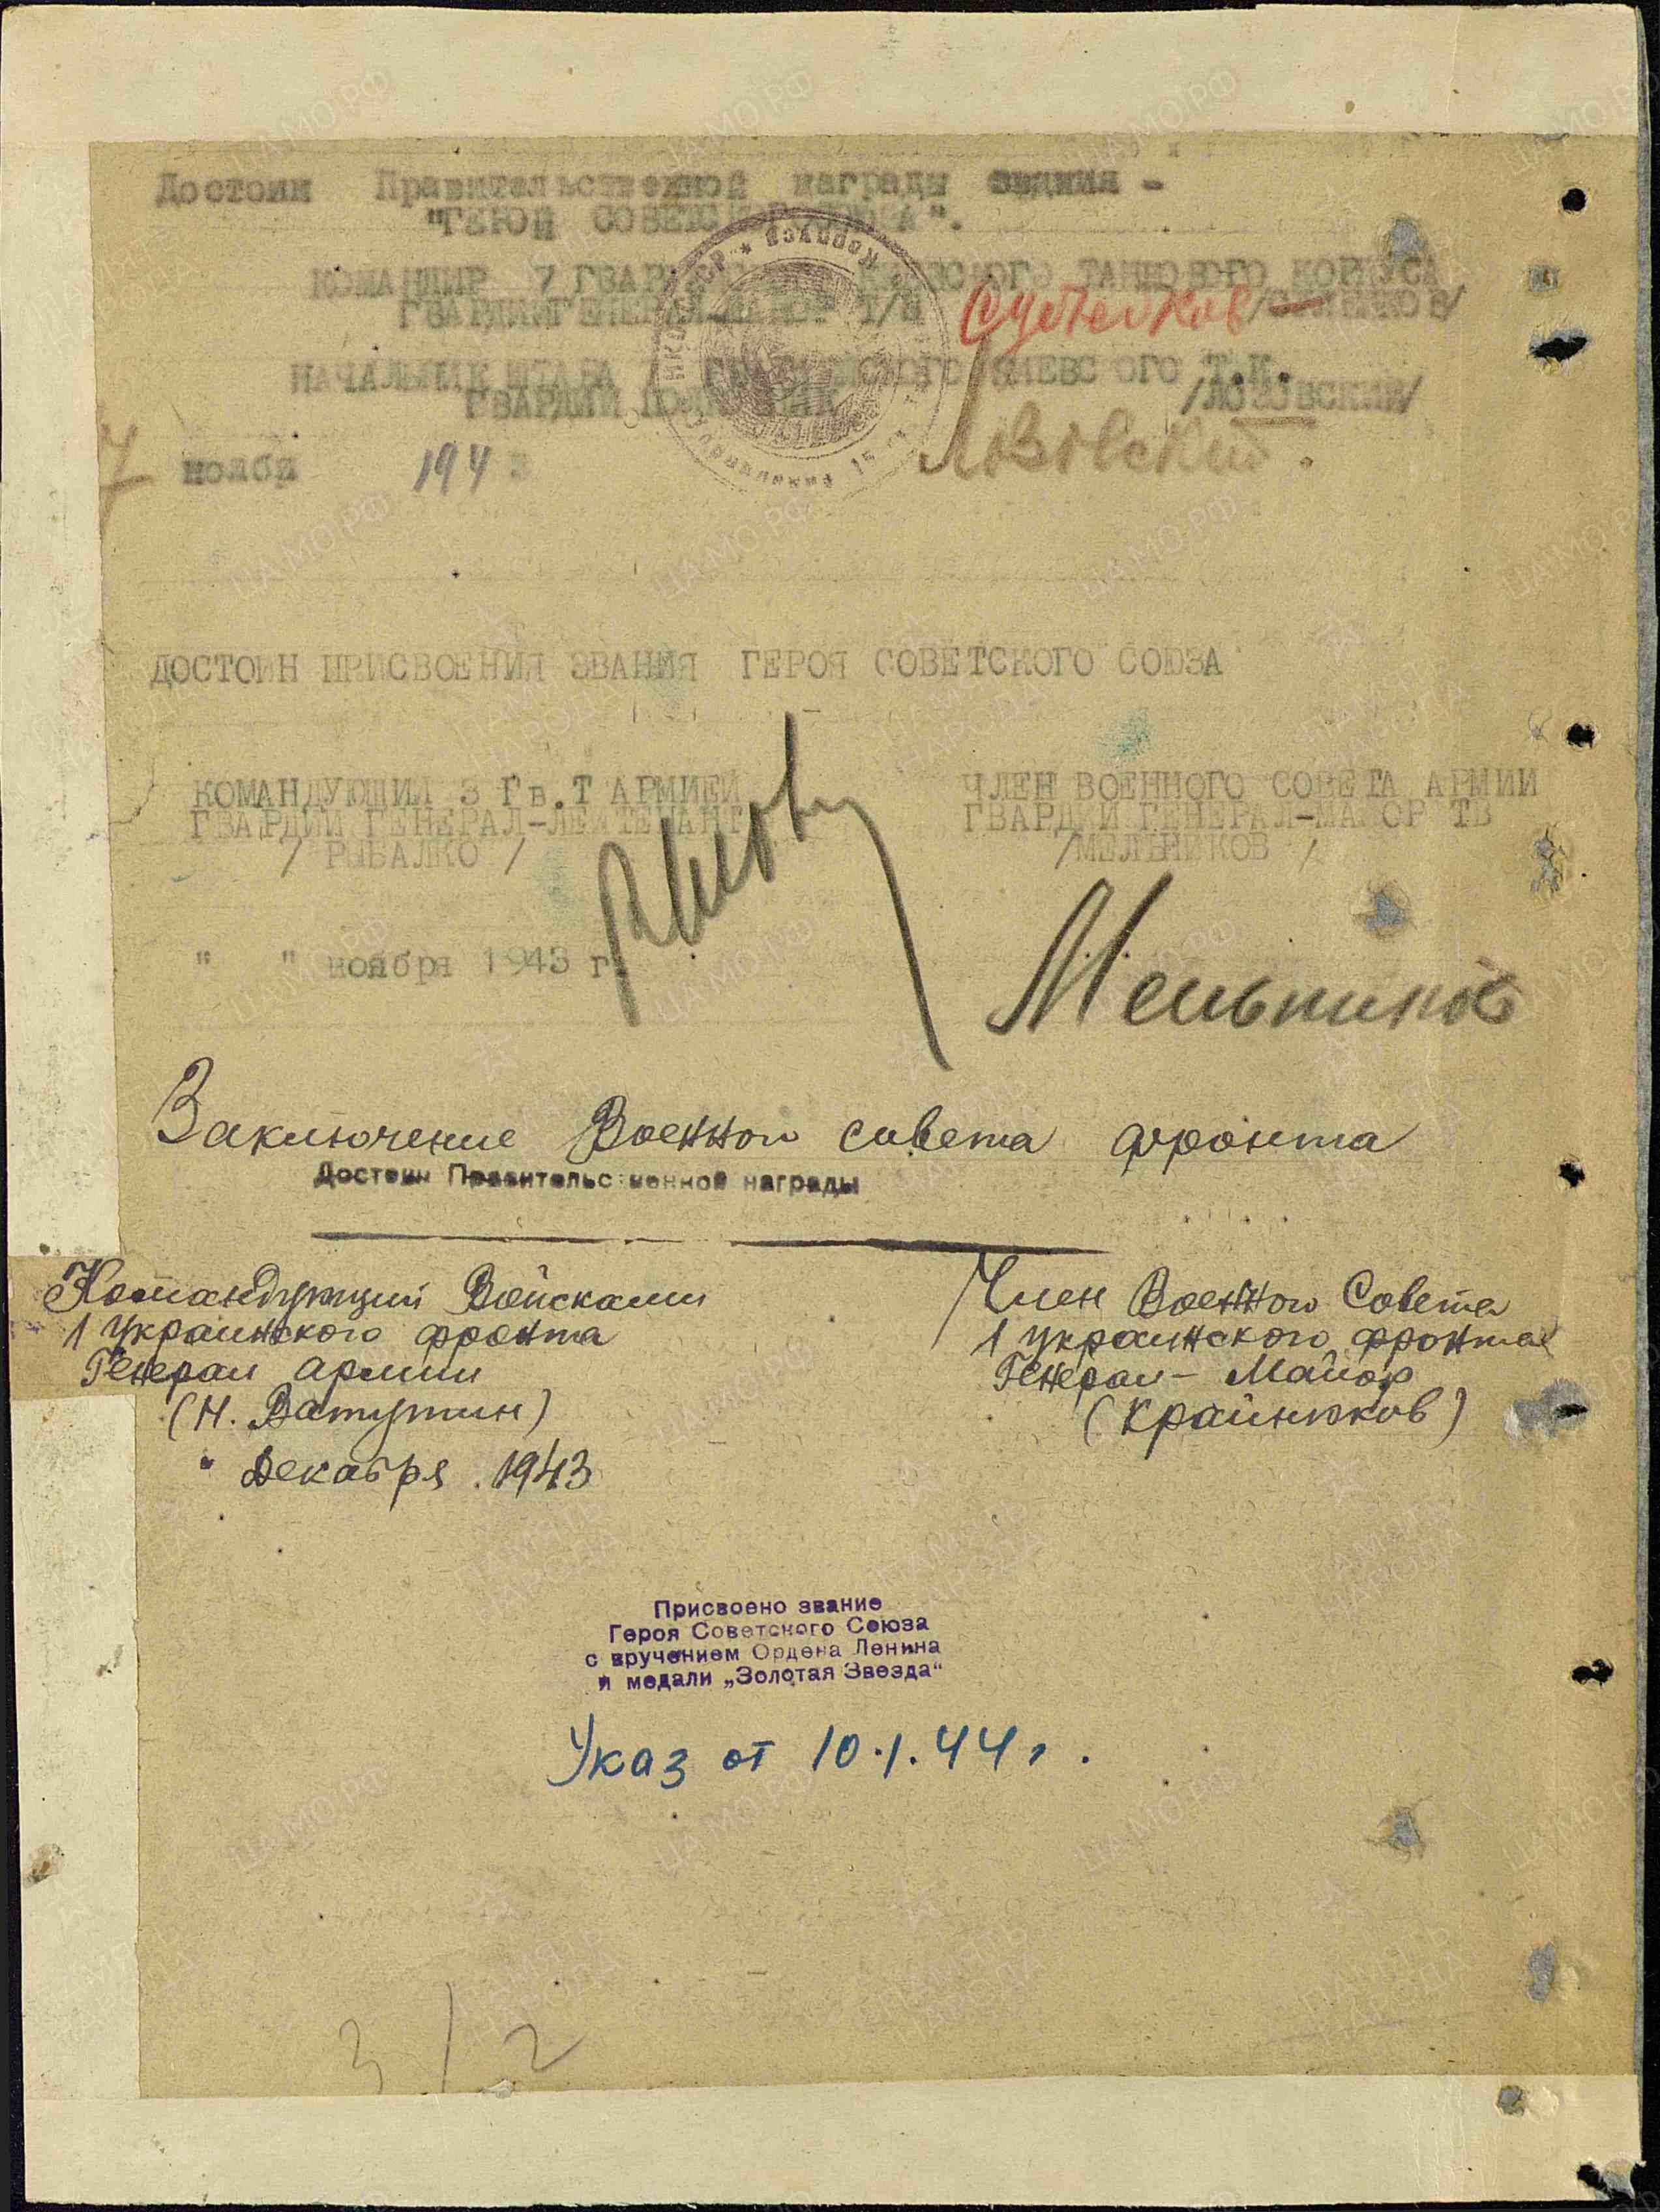 Достоин Правительственной награды звания -
"ГЕРОЙ СОВЕТСКОГО СОЮЗА".
КОМАНДИР 7 ГВАРДЕЙСКОГО КИЕВСКОГО ТАНКОВОГО КОРПУСА
ГВАРДИИ ГЕНЕРАЛ-МАЙОР Т/В
Сулейков
НАЧАЛЬНИК ШТАБА 7 ГВАРДЕЙСКОГО КИЕВСКОГО Т.К.
ГВАРДИИ ПОЛКОВНИК /ЛОЗОВСКИЙ/
Лозовский
7 ноябр 1943
ДОСТОИН ПРИСВОЕНИЯ ЗВАНИЯ ГЕРОЯ СОВЕТСКОГО СОЮЗА
КОМАНДУЮЩИЙ 3 Гв.Т АРМИЕЙ ЧЛЕН ВОЕННОГО СОВЕТА АРМИИ
ГВАРДИИ ГЕНЕРАЛ-ЛЕЙТЕНАНТ ГВАРДИИ ГЕНЕРАЛ-МАЙОР ТВ
/ РЫБАЛКО / /МЕЛЬНИКОВ /
Мельников
" " ноября 1943 г.
Заключение Военного совета фронта
Достоин Правительственной награды
Командующий Войсками
1 Украинского фронта
Генерал армии
(Н. Ватутин)
" Декабря 1943
Член Военного Совета
1 Украинского фронта
Генерал-Майор
(Крайнюков)
Присвоено звание
Героя Советского Союза
с вручением Ордена Ленина
и медали „Золотая Звезда"
Указ от 10.1.44 г.
3/2